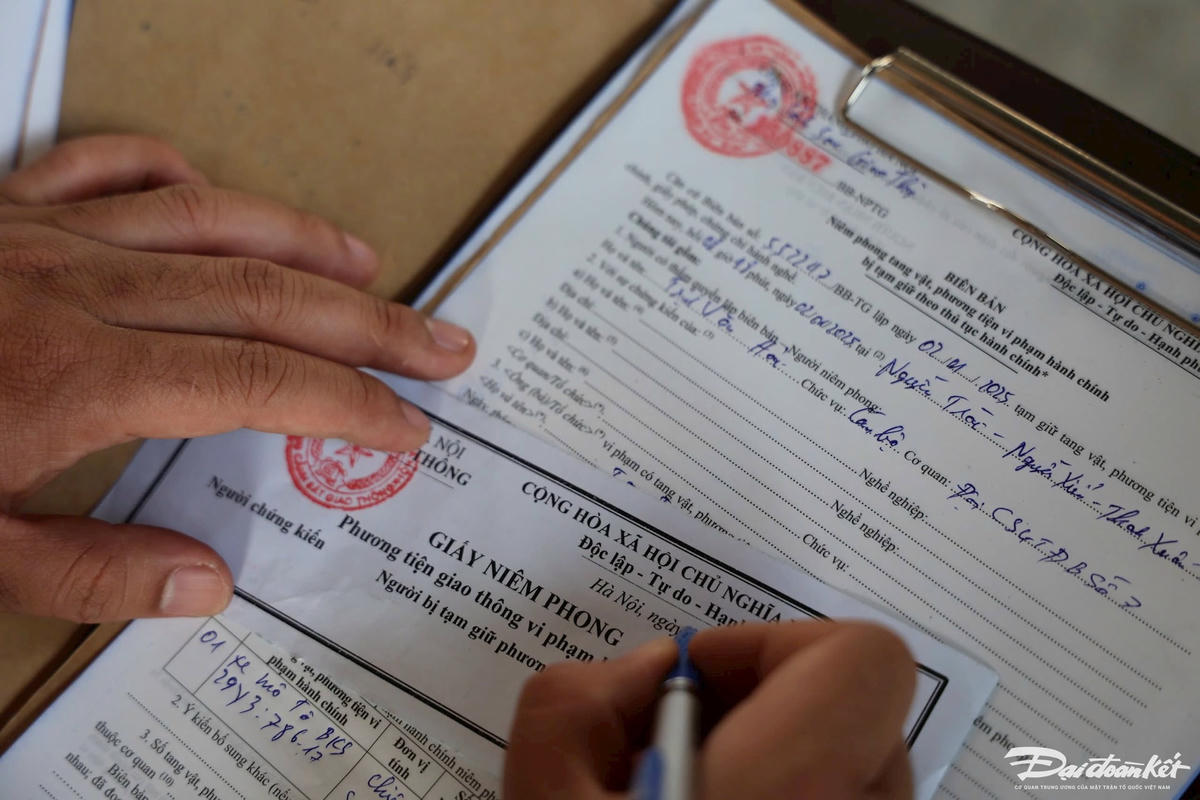 887
/BB-NPTG
CỘNG HÒA XÃ HỘI CHỦ NGHĨ
Độc lập - Tự do - Hạnh ph
BIÊN BẢN
Niêm phong tang vật, phương tiện vi phạm hành chính
bị tạm giữ theo thủ tục hành chính*
Căn cứ Biên bản số: 552217 /BB-TG lập ngày 02 2025 tạm giữ tang vật, phương tiện vi
chính, giấy phép, chứng chỉ hành nghề.
Hôm nay, hồi giờ phút, ngày 02 2025 tại (2) Nguyễn Trãi - Nguyễn Xiển - Thanh Xuân
Chúng tôi gồm:
1. Người có thẩm quyền lập biên bản - Người niêm phong:
Họ và tên: Văn Chức vụ: Cán bộ Cơ quan: Đội CSGT ĐB Số 7
2. Với sự chứng kiến của: (3)
a) Họ và tên: (4) Nghề nghiệp:
Địa chỉ:
b) Họ và tên: (5) Nghề nghiệp:
Địa chỉ:
c) Họ và tên: (6) Chức vụ:
<Cơ quan/Tổ chức>(*):
3. <Ông (bà)/Tổ chức>(*) vi phạm có tang vật, phương
<Họ và tên>(*):
NỘI
THÔNG
CỘNG HÒA XÃ HỘI CHỦ NGHĨA
Độc lập - Tự do - Hạn
Hà Nội, ngày
GIẤY NIÊM PHONG
Phương tiện giao thông vi phạm
Người bị tạm giữ phươn
Người chứng kiến
phương tiện vi
phạm hành chính
Đơn vị
tính
01 xe mô tô BKS
29Y3-786.17
chiế
2. Ý kiến bổ sung khác (nế
3. Số tang vật, phư
thuộc cơ quan (10)
Biên bả
nhau; đã đọ
Đại đoàn kết
CƠ QUAN TRUNG ƯƠNG CỦA MẶT TRẬN TỔ QUỐC VIỆT NAM